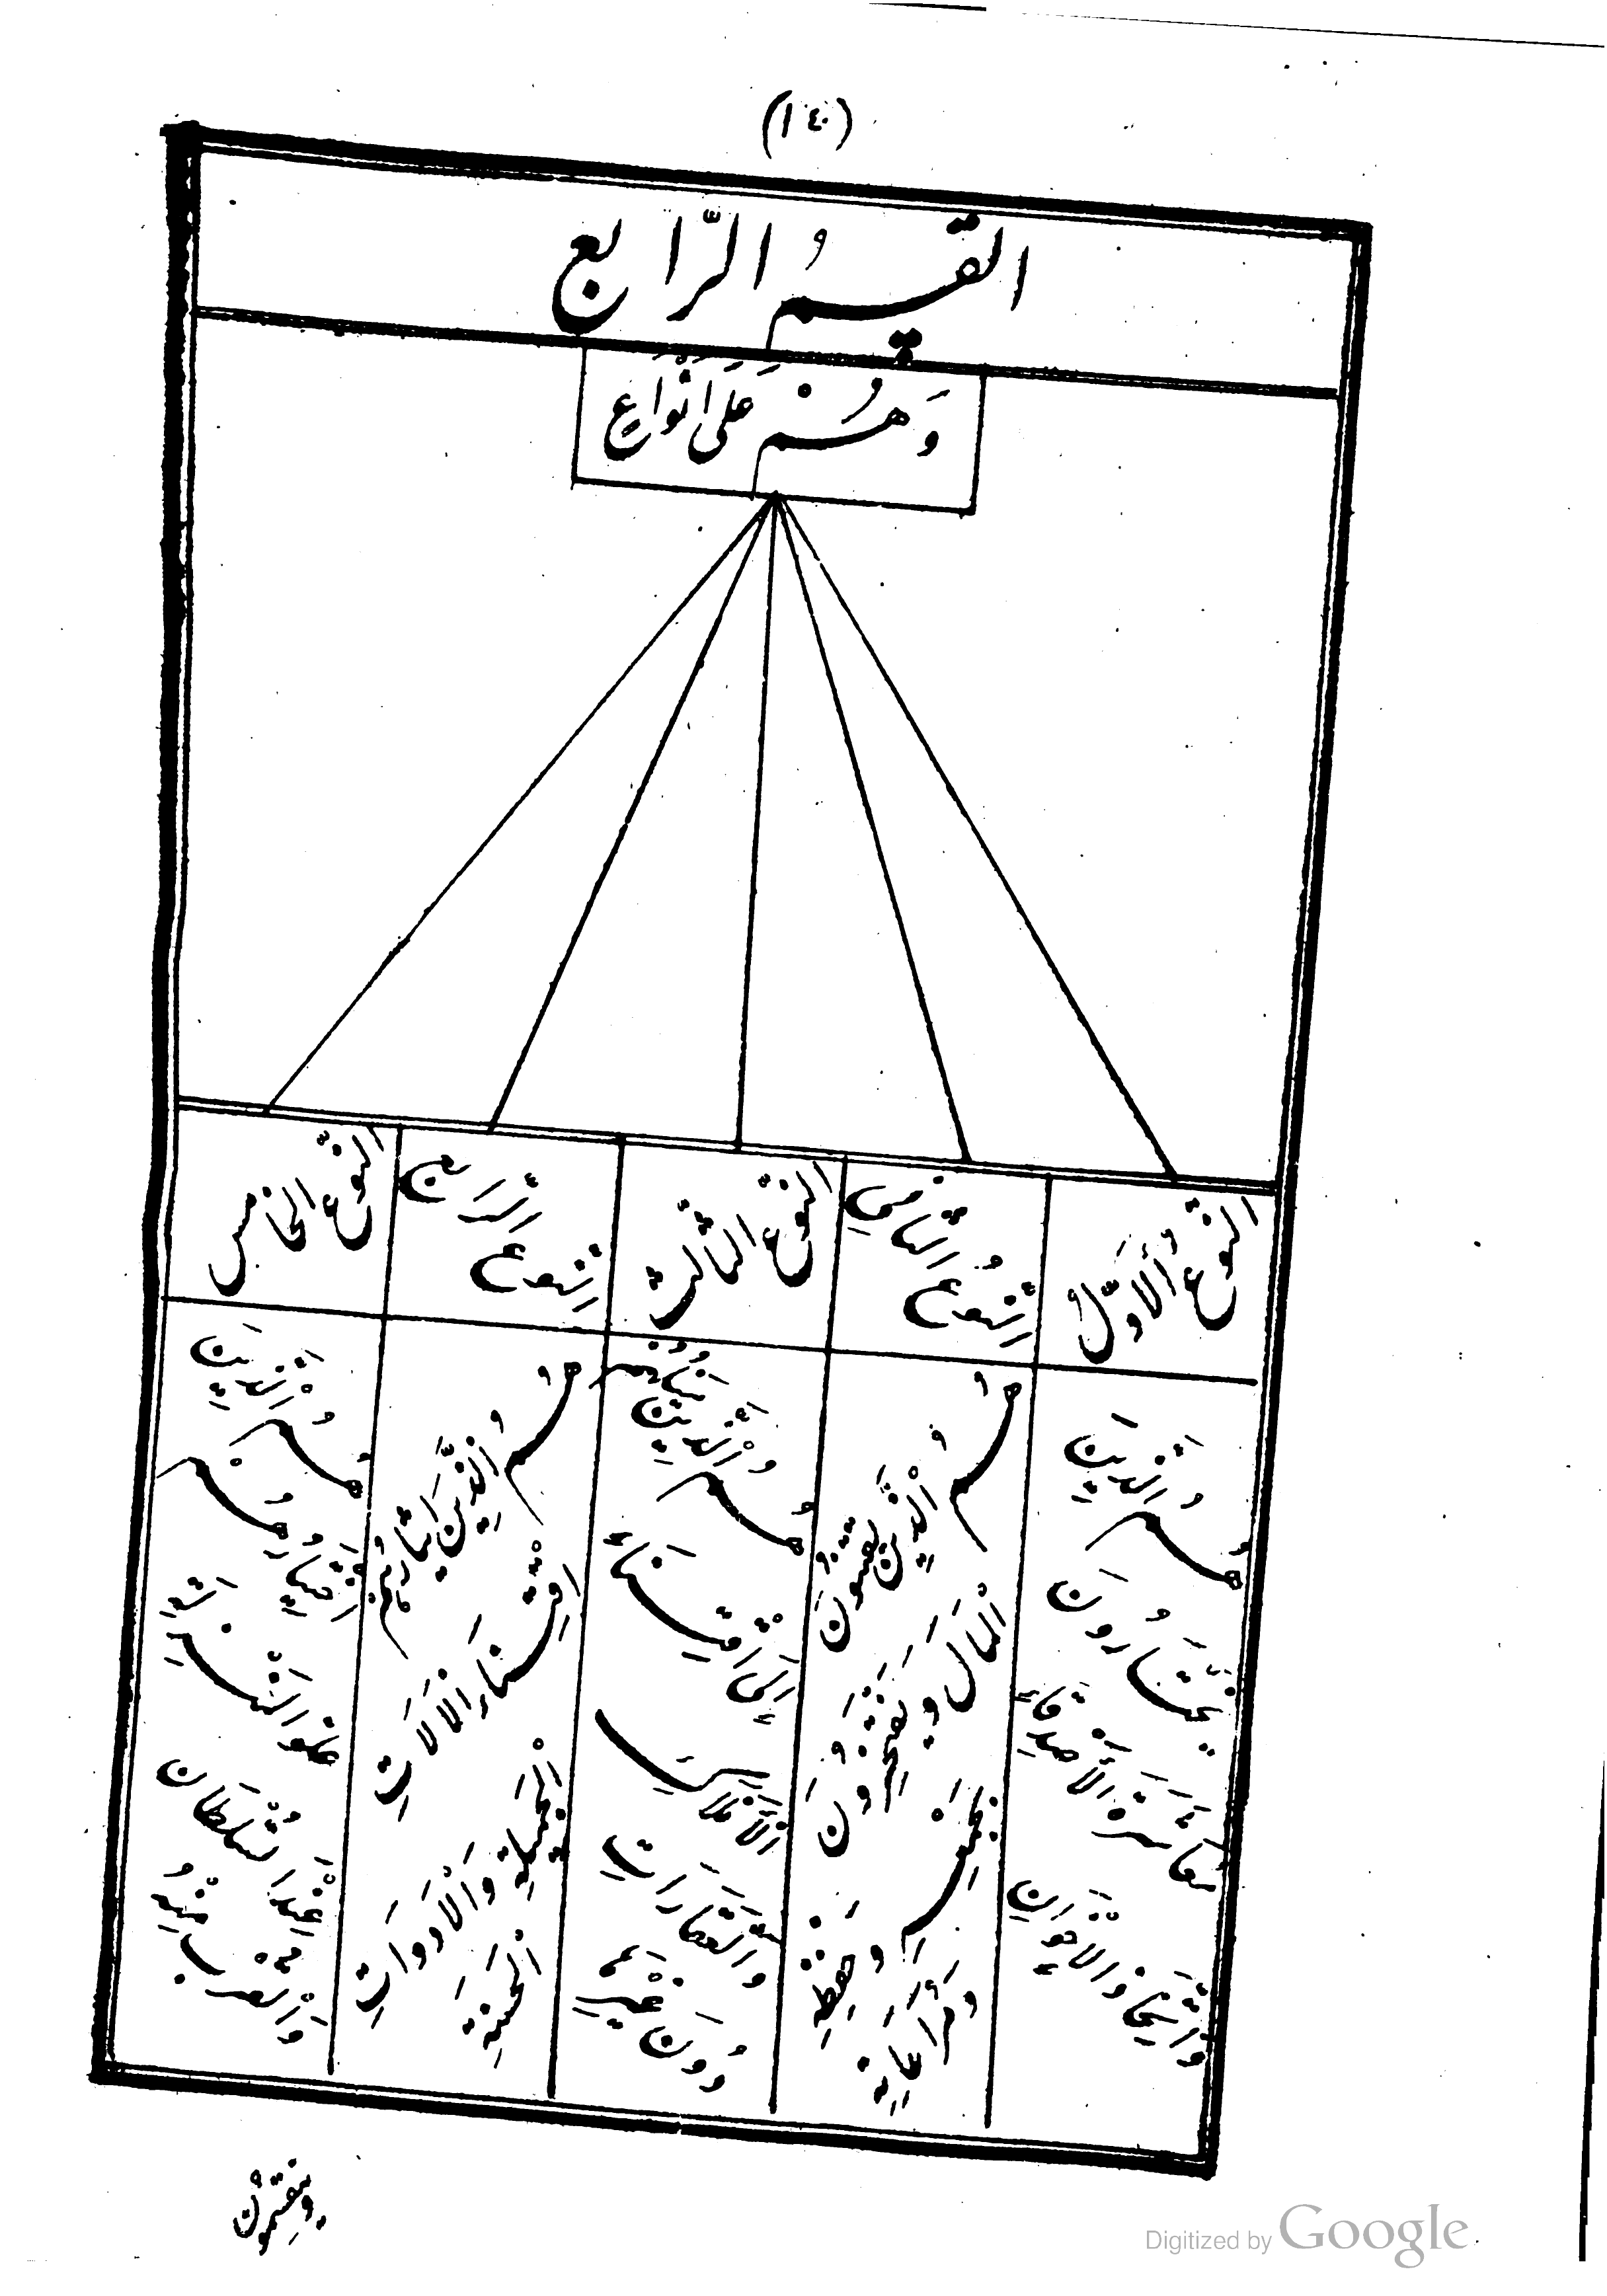 (١٤٠)
القِسمُ الرَّابع
وَهُمْ عَلَى أَنْوَاعٍ
النَّوعُ الأَوَّلُ
هُمُ الَّذِينَ
يَخْتَارُونَ
مُعَاشَرَةَ الأَصْدِقَاءِ
وَالأَخْوَانِ
النَّوعُ الثَّانِي
هُمُ الَّذِينَ يَقْتَنُونَ
المَالَ وَيَفْتَخِرُونَ
بِجَمْعِهِ وَحِفْظِهِ
النَّوعُ الثَّالِثُ
هُمُ الَّذِينَ
إِلَى اقْتِنَاءِ
الأَمْلَاكِ
وَالعَقَارَاتِ
دُونَ غَيْرِهِمَا
النَّوعُ الرَّابِعُ
هُمُ الَّذِينَ إِيثَارُهُمْ
اقْتِنَاءَ الآلَاتِ
الجَمِيلَةِ وَالأَدَوَاتِ
الحَسَنَةِ
النَّوعُ الخَامِسُ
هُمُ الَّذِينَ
هُمْ
نَحْوَ المَنْزِلَةِ
عِنْدَ السُّلْطَانِ
وَالقُرْبِ مِنْهُ
Digitized by Google